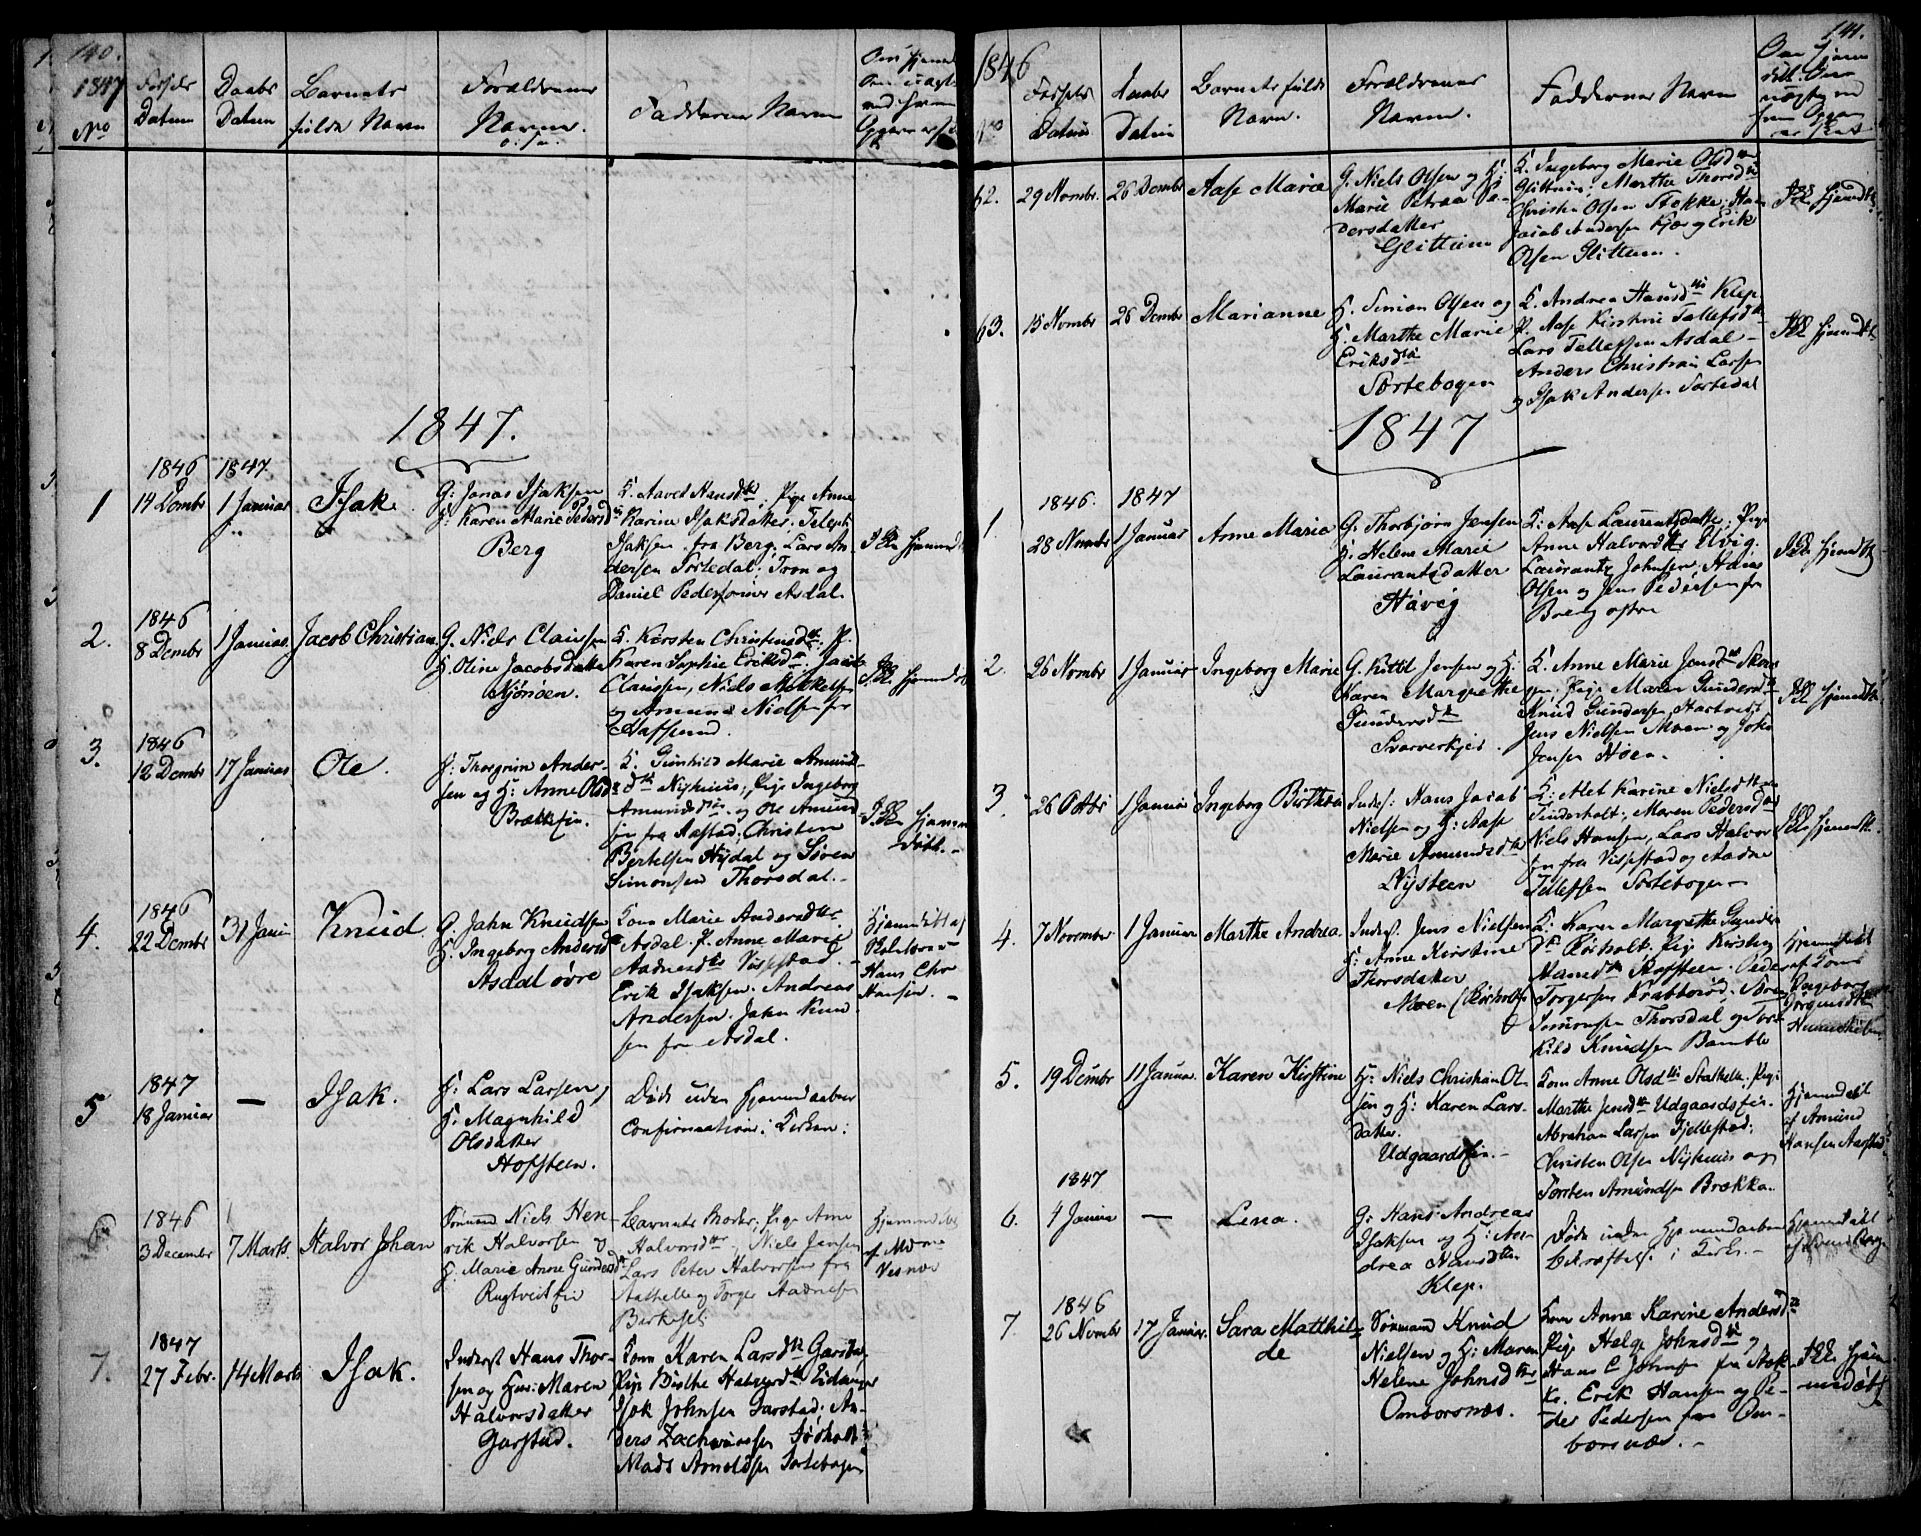 140.
1847
No
Fødsels
Datum
Daabs
Datum
Barnets
fulde Navn
Forældrenes
Navne.
Faddernes Navn
1847.
1
1846
14 Dcmbr
1847
1 Januar
Isak
G: Jonas Isaksen
H: Karen Marie Pedersd
Berg
K. Aavet Hansdtr; Pige Anne
Karine Isaksdatter. Teleph
Isaksen fra Berg; Lars An-
dersen Tortedal; Tron og
Daniel Pedersønner Asdal
Ikke hjemmdt
2.
1846
8 Dcmbr
1 Januar
Jacob Christian
G. Niels Claussen
H. Oline Jacobsdatter
Kjønøen.
K. Kirsten Christensdtr: P.
Karen Sophie Eriksdtr. Jacob
Claussen, Niels Mikkelsen
og Amund Nielsen fra
Haffsund.
Ikke hjemmdt
3.
1846
12 Dcmbr
17 Januar
Ole.
H: Thorgrim Ander-
sen og H: Anne Olsd
Brækkeie.
K. Gunhild Marie Amund-
dtr Nyhuus; Pige Ingeborg
Amundsdtr og Ole Amund
sen fra Aastad; Christen
Bertelsen Nydal og Søren
Simonsen Thorsdal.-
Ikke hjemme
døbt.-
4.
1846
22 Dcmbr
31 Januar
Knud.
G. Jahn Knudsen
H. Ingeborg Andersd
Asdal øvre
Kone Marie Andersdtr
Asdal. P. Anne Marie
Aadnesdtr Vissestad.
Erik Isaksen. Andreas
Andersen. Jahn Knud
sen fra Asdal.
Hjemmdøbt af
Skolelærer
Hans Chr
Hansen.-
5
1847
18 Januar
—
Isak.
H: Lars Larsen,
H: Magnhild
Olsdatter
Hofsteen.
Døde uden Hjemmedaabens
Confirmation i Kirken:
6.
1846
3 December
7 Marts.
Halvor Johan
Sømand Niels Hen-
rik Halvorsen og
H: Marie Anne Gundersd
Rugtveit Eie
Barnets Moder; Pige Anne
Halvorsdtr, Niels Jensen
Lars Peter Halvorsen fra
Stathelle og Torger Aadnesen
Hjemmedøbt
af
7.
1847
27 Febr.
14 Marts
Isak.
Inderst Hans Thor-
sen og Hus: Maren
Halvorsdatter
Garstad.
Kone Karen Larsdtr Garstad
Pige Birthe Halvordtr Eidanger
Isak Johnsen Garstad: An-
ders Zachariassen
Mads Arnoldsen Tortebogen
141.
1846
No
Fødsels
Datum
Daabs
Datum
Barnets fulde
Navn.
Forældrenes
Navne.
Faddernes Navn
62.
29 Novmbr.
26 Dcmbr
Aase Marie
G. Niels Olsen og H:
Marie Petrea Pe-
dersdatter
Glittum
K. Ingeborg Marie Olsdtr
Glittum. Marthe Thorsdtr
Christen Olsen Stokke;
Jacob Andersen Kjær og Erik
Olsen Glittum.
Ikke hjemdt
63.
15 Novmbr
26 Dcmbr
Marianne
H. Simon Olsen og
H. Marthe Marie
Eriksdtr
Tortebogen
K. Andrea Hansdtr Klep
P. Aase Kirstine Tellefsdtr
Lars Tellefsen Asdal-
Anders Christian Larsen
og Isak Andersen Tortedal
Ikke hjemdt
1847
1.
1846.
28 Novmbr
1847
1 Januar
Anne Maria
G. Thorbjørn Jensen
H: Helene Marie
Laurantsdatter
Høvig
K: Aase Laurantsdatter; Pige
Anne Halvordtr Elvig.
Laurants Johnsen,
Olsen og Jens Pedersen fra
Berg østre
Ikke hjemdt
2.
26 Novmbr
1 Januar
Ingeborg Marie
G. Kittil Jensen og H:
Karen Margrethe
Gundersdtr
Svarverkjer.
K. Anne Marie Jensdtr
Pige Maren Gundersdtr
Knud Gundersen Hartvedt
Jens Nielsen Moen og John
Jensen Høen.
Ikke hjemdt
3
26 Octbr
1 Januar
Ingeborg Birthea
Inders: Hans Jacob
Nielsen og H: Aase
Marie Amundsdtr
Nysteen
K: Alet Karine Nielsdtr
Tinderholt; Maren Pedersdtr
Niels Hansen, Lars Halvor
sen fra Vissestad og Aadne
Tellefsen Tortebogen-
Ikke hjemdt.
4.
7 November
1 Januar
Marthe Andrea
Inders. Jens Nielsen
H: Anne Kirstine
Thorsdatter
Moen (Rørholt)
K: Karen Margrethe Gunder
dtr Rørholt; Pige Kirsten
Hansdtr Rofsteen. Peder
Torgersen Krabberød. Søren
Simonsen Thorsdal og Tor
kild Knudsen Bamble
Hjemmedøbt
af Kone
Ingeborg
5.
19 Dcmbr
11 Januar.
Karen Kirstine
H: Niels Christian Ol-
sen og H: Karen Lars-
datter.
Udgaardseie.-
Kone Anne Olsdtr Stathelle. Pige
Marthe Jensdtr Udgaardseie.
Abraham Larsen Fjellestad;
Christen Olsen Nyhuus og
Torsten Amundsen Brække.
Hjemmedøbt
af Amund
Hansen Aarstad
6.
1847
4 Januar
—
Lena.
G: Hans Andreas
Isaksen og H: An-
drea Hansdtr
Klep.
Døde uden Hjemmedaabens
bekræftelse i Kirke.-
Hjemmedøbt
7.
1846
26 Novmbr
17 Januar.
Sara Mathil-
de
Sømand Knud
Nielsen og H: Maren
Helene Johnsdtr
Omborsnæs.
Kone Anne Karine Andersdtr
Pige Helge Johnsdtr og
Hans C Johnsen fra Stok-
ke. Erik Hansen og Pe-
der Pedersen fra Om-
borsnæs.-
Ikke hjem-
medøbt